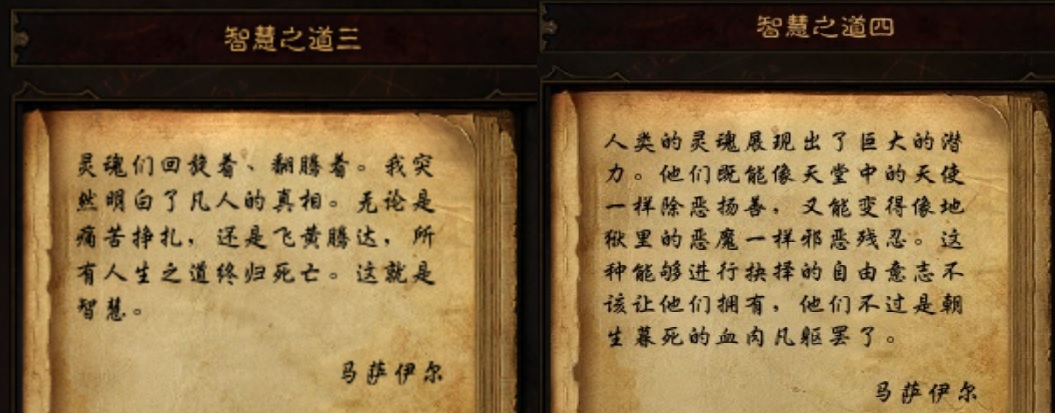 智慧之道三
灵魂们回旋着、翻腾着。我突
然明白了凡人的真相。无论是
痛苦挣扎，还是飞黄腾达，所
有人生之道终归死亡。这就是
智慧。
马萨伊尔
智慧之道四
人类的灵魂展现出了巨大的潜
力。他们既能像天堂中的天使
一样除恶扬善，又能变得像地
狱里的恶魔一样邪恶残忍。这
种能够进行抉择的自由意志不
该让他们拥有，他们不过是朝
生暮死的血肉凡躯罢了。
马萨伊尔